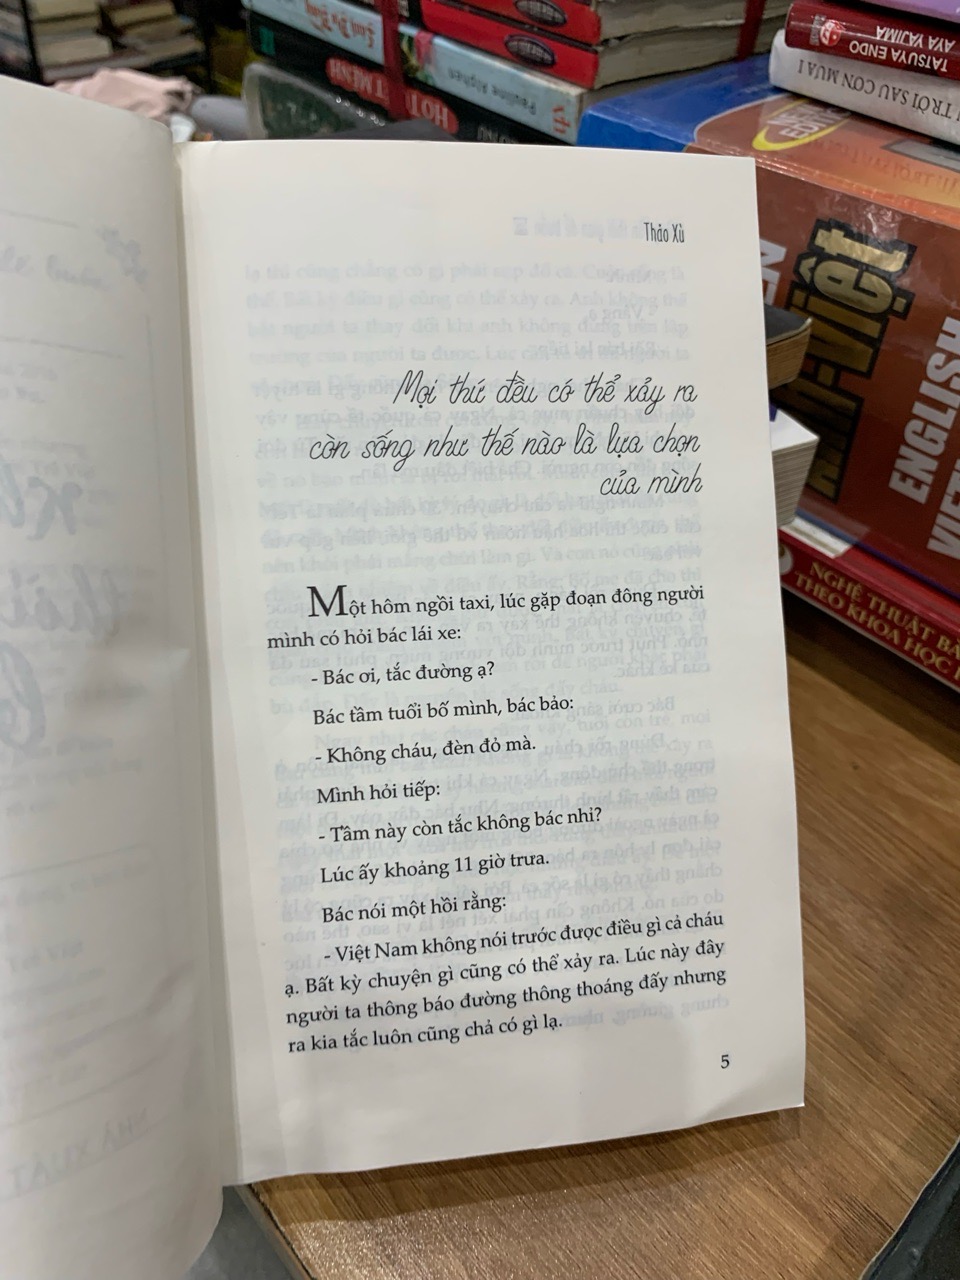 Thảo Xù
Mọi thứ đều có thể xảy ra
còn sống như thế nào là lựa chọn
của mình
Một hôm ngồi taxi, lúc gặp đoạn đông người
mình có hỏi bác lái xe:
- Bác ơi, tắc đường ạ?
Bác tầm tuổi bố mình, bác bảo:
- Không cháu, đèn đỏ mà.
Mình hỏi tiếp:
- Tầm này còn tắc không bác nhỉ?
Lúc ấy khoảng 11 giờ trưa.
Bác nói một hồi rằng:
- Việt Nam không nói trước được điều gì cả cháu
ạ. Bất kỳ chuyện gì cũng có thể xảy ra. Lúc này đây
người ta thông báo đường thông thoáng đấy nhưng
ra kia tắc luôn cũng chả có gì lạ.
5
TATSUYA ENDO
AYA YAJIMA
TRỜI SAU CƠN MƯA 1
Pauline Alphen
HOT
ENGLISH
NGHỆ THUẬT BÁ
THEO KHOA HỌC